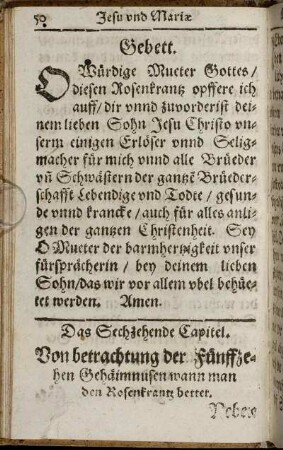 50 Jesu vnd Mariæ
Gebett.
O Würdige Mueter Gottes/
diesen Rosenkrantz opffere ich
auff/ dir vnnd zuvorderist dei-
nem lieben Sohn Jesu Christo vn-
serm einigen Erlöser vnnd Selig-
macher für mich vnnd alle Brüeder
vñ Schwästern der gantzẽ Brüeder-
schafft Lebendige vnd Todte / gesun-
de vnnd krancke / auch für alles anli-
gen der gantzen Christenheit. Sey
O Mueter der barmhertzigkeit vnser
fürsprächerin / bey deinem lieben
Sohn/das wir vor allem vbel behüe-
tet werden. Amen.
Das Sechzehende Capitel.
Von betrachtung der Fünffze-
hen Gehäimnusen wann man
den Rosenkrantz bettet.
Neben